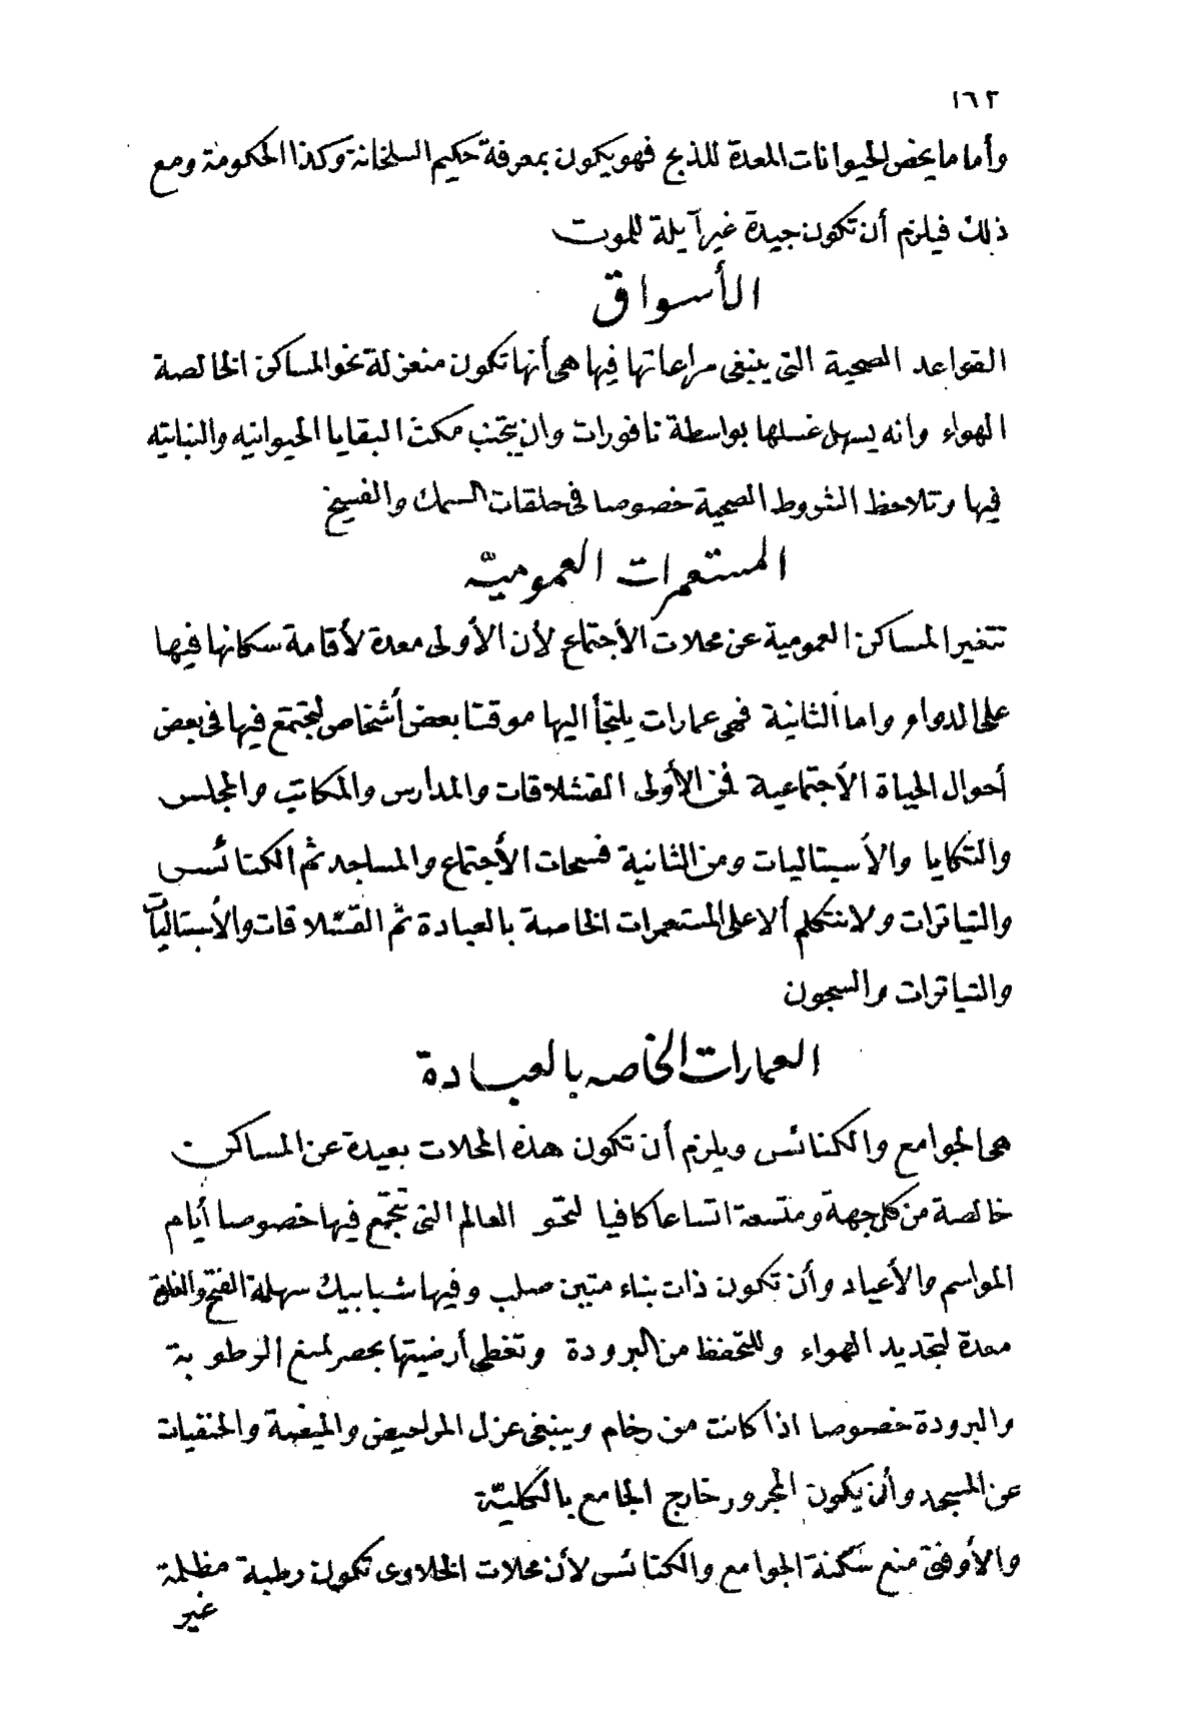 ١٦٢
وأما ما يخص الحيوانات المعدة للذبح فهو يكون بمعرفة حكيم السلخانة وكذا الحكومة ومع
ذلك فيلزم أن تكون جيدة غير آيلة للموت
الأسواق
القواعد الصحية التى ينبغى مراعاتها فيها هى أنها تكون منعزلة نحو المساكن الخالصة
الهواء وانه يسهل غسلها بواسطة نافورات وان يتجنب مكث البقايا الحيوانيه والنباتيه
فيها وتلاحظ الشروط الصحية خصوصا فى حلقات السمك والفسيخ
المستعمرات العموميّه
تتغير المساكن العمومية عن محلات الأجتماع لأن الأولى معدة لأقامة سكانها فيها
على الدوام واما الثانية فهى عمارات يلتجأ اليها موقتا بعض أشخاص ليجتمع فيها فى بعض
أحوال الحياة الأجتماعية فمن الأولى القشلاقات والمدارس والمكاتب والمجلس
والتكايا والأسبتاليات ومن الثانية فسحات الأجتماع والمساجد ثم الكنائس
والتياترات ولا نتكلم ألا على المستعمرات الخاصة بالعبادة ثم القشلاقات والأسبتاليات
والتياترات والسجون
العمارات الخاصه بالعبادة
هى الجوامع والكنائس ويلزم أن تكون هذه المحلات بعيدة عن المساكن
خالصة من كل جهة ومتسعة اتساعا كافيا لنحو العالم التى تجتمع فيها خصوصا أيام
المواسم والأعياد وأن تكون ذات بناء متين صلب وفيها شبابيك سهلة الفتح والغلق
معدة لتجديد الهواء وللتحفظ من البرودة وتغطى أرضيتها بحصر لمنع الرطوبة
والبرودة خصوصا اذا كانت من رخام وينبغى عزل المراحيض والميضة والحنفيات
عن المسجد وأن يكون المجرور خارج الجامع بالكليّة
والأوفق منع سكنة الجوامع والكنائس لأن محلات الخلاوى تكون رطبة مظلمة
غير